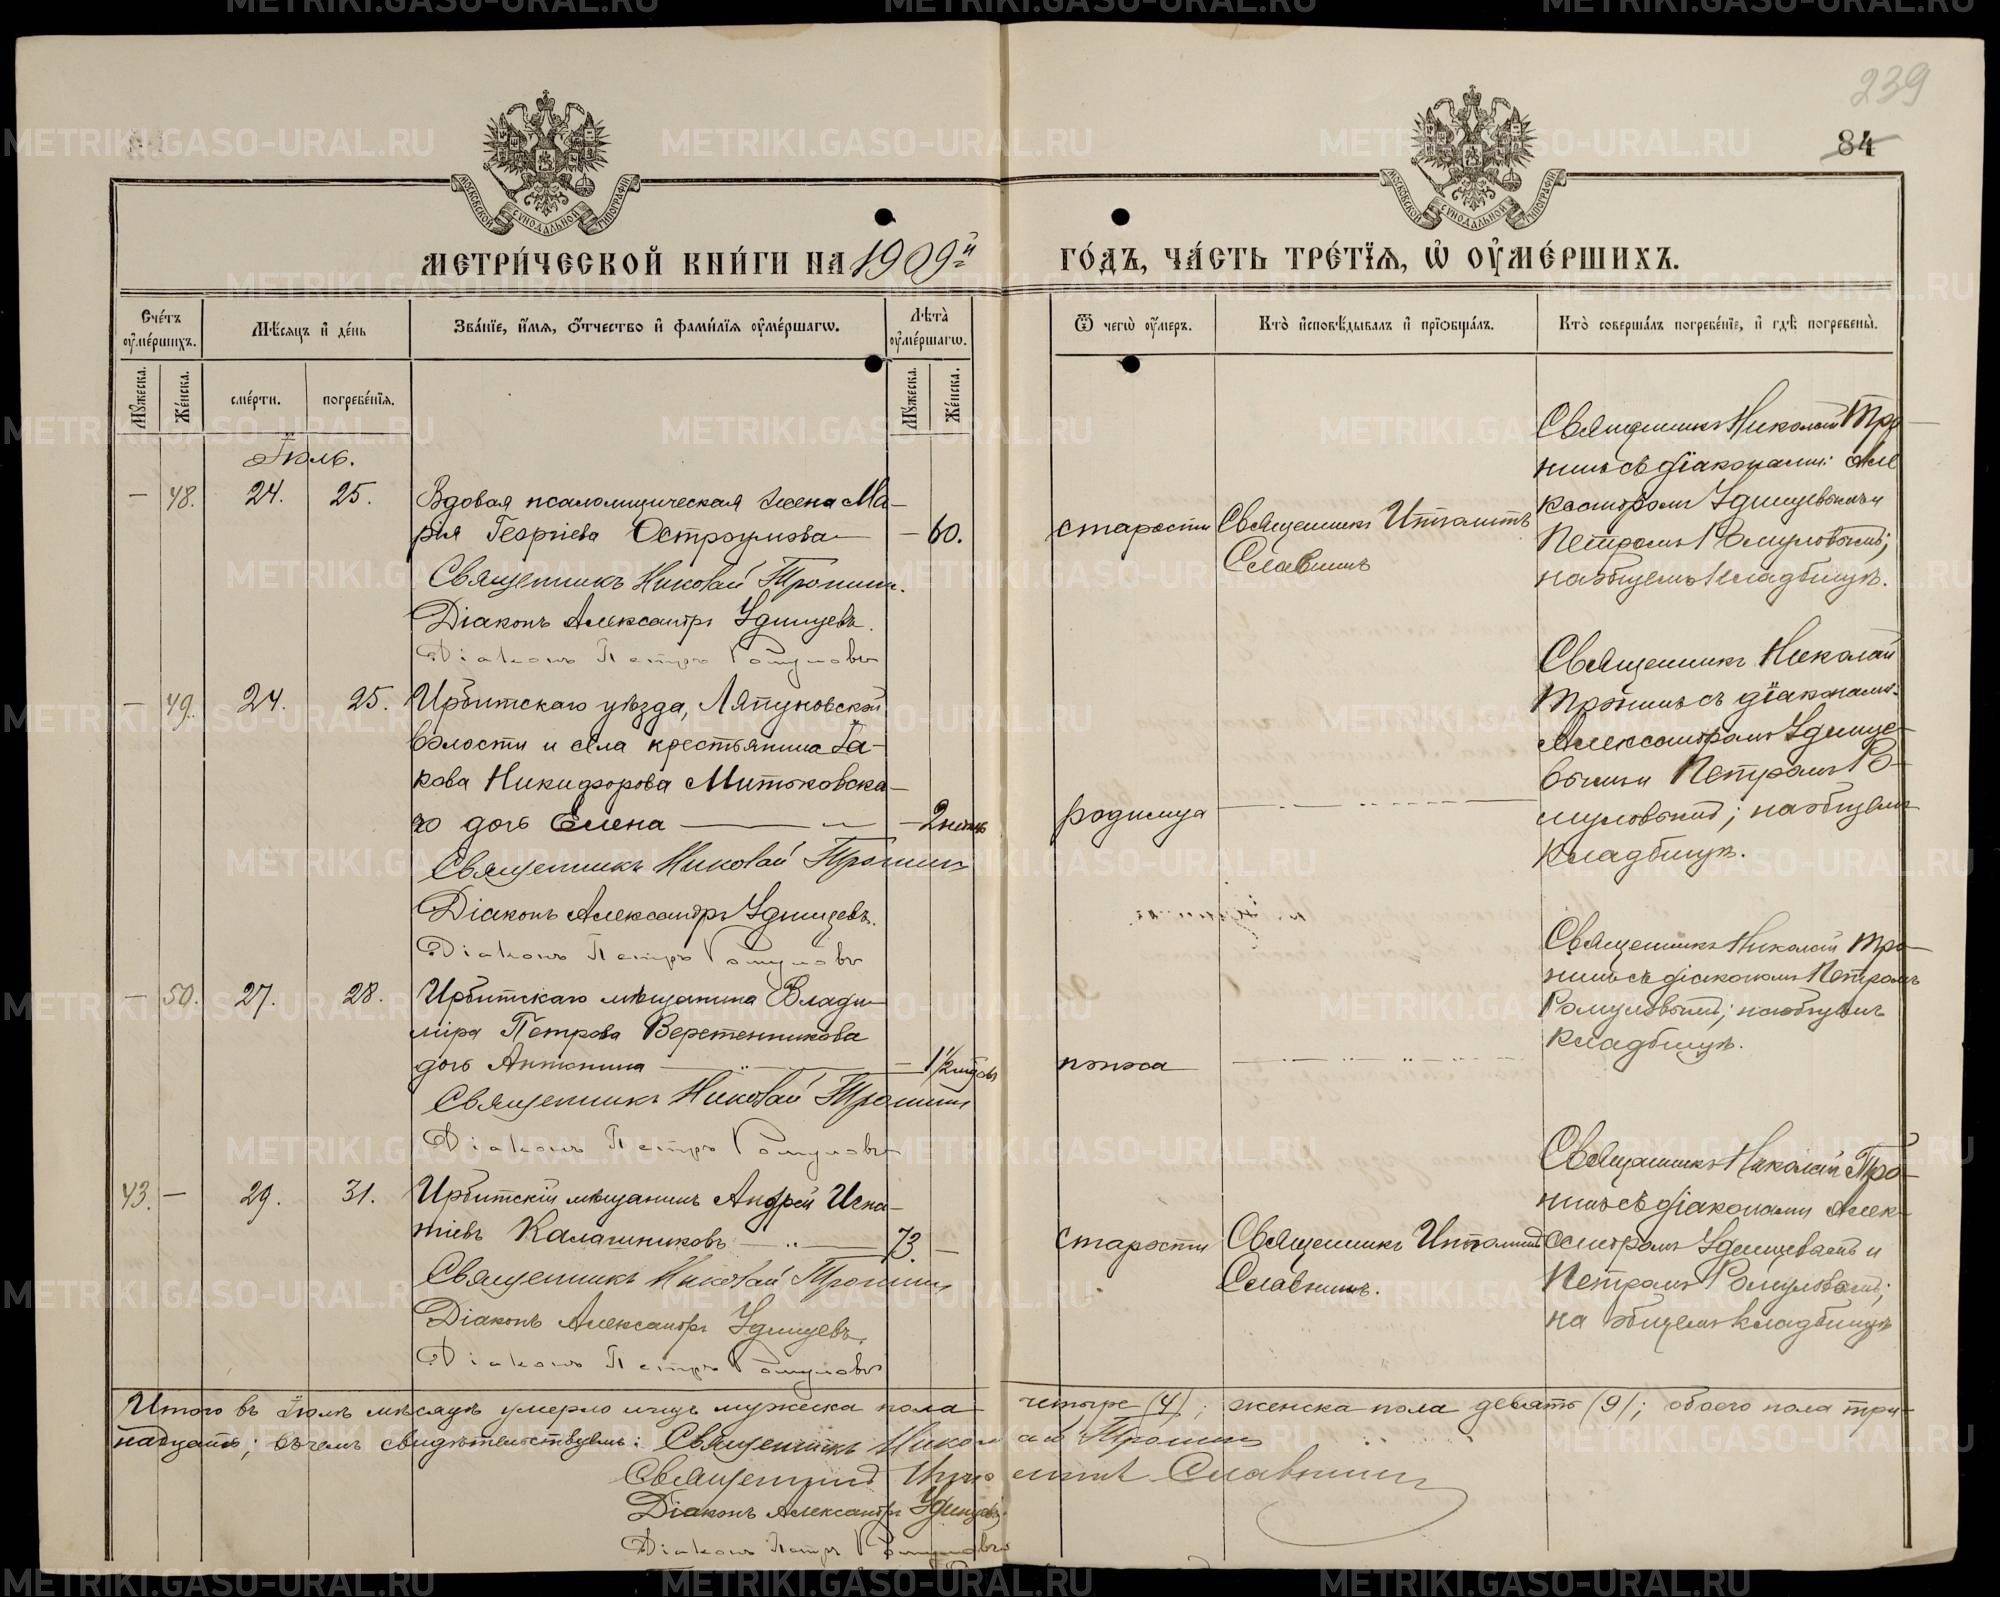 239
84
МОСКОВСКОЙ СѴНОДАЛЬНОЙ ТИПОГРАФІИ
МОСКОВСКОЙ СѴНОДАЛЬНОЙ ТИПОГРАФІИ
МЕТРИ́ЧЕСКОЙ КНИ́ГИ НА 1909й ГО́ДЪ, ЧА́СТЬ ТРЕ́ТЇЯ, Ѡ ОУ҆МЕ́РШИХЪ.
Сче́тъ оу҆ме́ршихъ.
Мѣ́сяцъ и҆ де́нь
Зва́нїе, и҆́мѧ, ѻ҆́тчество и҆ фами́лїѧ оу҆ме́ршагѡ.
Лѣ̀та̀ оу҆ме́ршагѡ.
Ѿ чегѡ̀ оу҆́меръ.
Кто̀ и҆сповѣ́дывалъ и҆ прїѡбща́лъ.
Кто̀ соверша́лъ погребе́нїе, и҆ гдѣ̀ погребены̀.
Мꙋ́жеска.
Же́нска.
сме́рти.
погребе́нїѧ.
Мꙋ́жеска.
Же́нска.
Іюль.
— 48. 24. 25. Вдовая псаломщическая жена Ма-
рія Георгіева Остроумова — 60.
Священникъ Николай Тронинъ.
Діаконъ Александръ Удинцевъ.
Діаконъ Петръ Ромуловъ
старости
Священникъ Ипполитъ
Славнинъ
Священникъ Николай Тро-
нинъ съ діаконами: Але
ксандромъ Удинцевымъ и
Петромъ Ромуловымъ;
на общемъ кладбищѣ.
— 49. 24. 25. Ирбитскаго уѣзда, Ляпуновской
волости и села крестьянина Іа-
кова Никифорова Митьковска-
го дочь Елена — 2 нед.
Священникъ Николай Тронинъ
Діаконъ Александръ Удинцевъ.
Діаконъ Петръ Ромуловъ
родимца
Священникъ Николай
Тронинъ съ діаконами
Александромъ Удинце-
вымъ и Петромъ Ро-
муловымъ; на общемъ
кладбищѣ.
— 50. 27. 28. Ирбитскаго мѣщанина Влади-
міра Петрова Веретенникова
дочь Антонина — 1½
Священникъ Николай Тронинъ
Діаконъ Петръ Ромуловъ
поноса
Священникъ Николай Тро-
нинъ съ діакономъ Петромъ
Ромуловымъ; на общемъ
кладбищѣ.
43. — 29. 31. Ирбитскій мѣщанинъ Андрей Игна-
тіевъ Калашниковъ 73. —
Священникъ Николай Тронинъ
Діаконъ Александръ Удинцевъ.
Діаконъ Петръ Ромуловъ
старости
Священникъ Ипполитъ
Славнинъ.
Священникъ Николай Тро-
нинъ съ діаконами Алек-
сандромъ Удинцевымъ и
Петромъ Ромуловымъ;
на общемъ кладбищѣ
Итого въ Іюлѣ мѣсяцѣ умерло лицъ мужеска пола четыре (4); женска пола девять (9); обоего пола три-
надцать; въ чемъ свидѣтельствуемъ: Священникъ Николай Тронинъ
Священникъ Ипполитъ Славнинъ
Діаконъ Александръ Удинцевъ.
Діаконъ Петръ Ромуловъ
METRIKI.GASO-URAL.RU